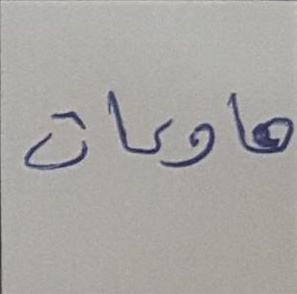 هاويات